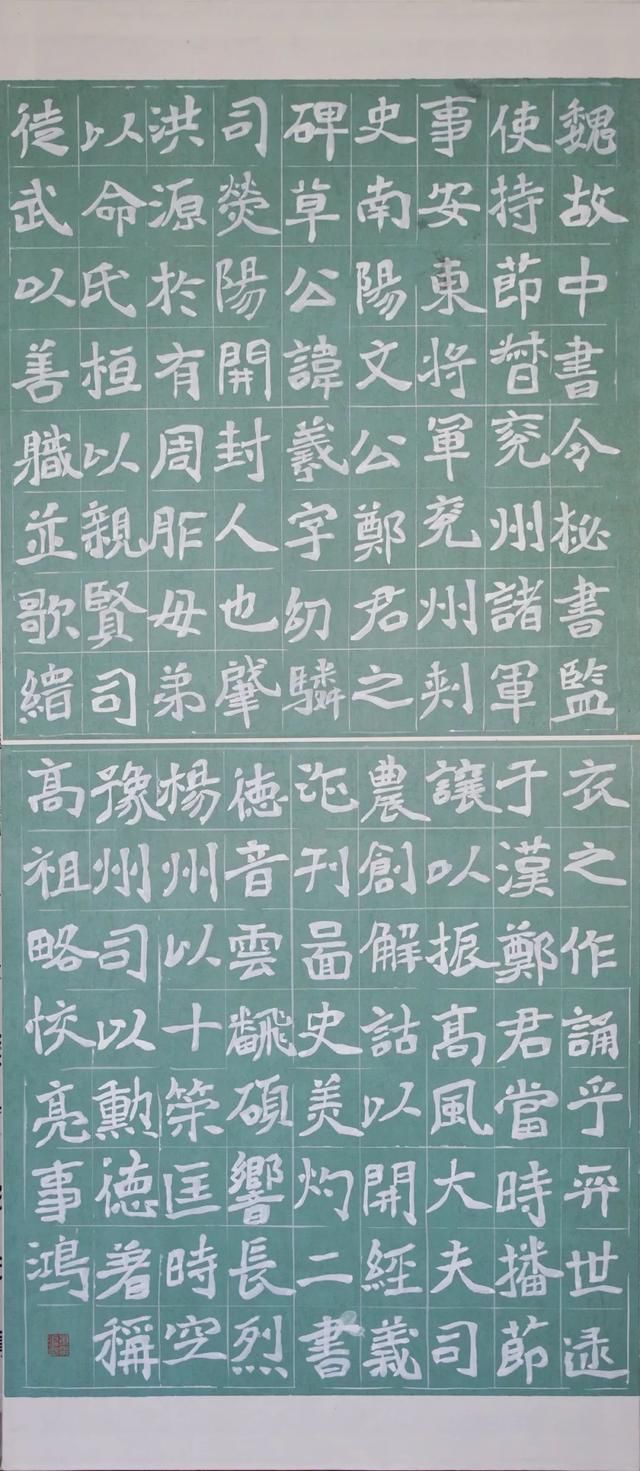 魏故中書令秘書監
使持節督兗州諸軍
事安東将軍兗州刺
史南陽文公鄭君之
碑草公諱羲字幼驎
司熒陽開封人也肇
洪源於有周胙母弟
以命氏桓以親賢司
徒武以善職並歌緇
衣之作誦乎弈世逯
于漢鄭君當時播節
讓以振高風大夫司
農創解詁以開經義
迹刊啚史美灼二書
德音雲飜碩響長烈
楊州以十策匡時空
豫州司以勳德著稱
高祖略恢亮事鴻